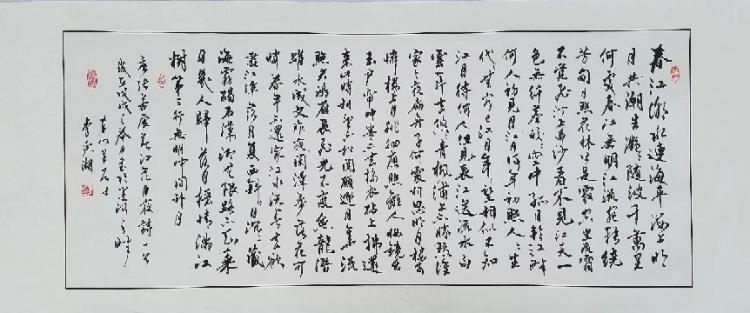 春江潮水連海平海上明
月共潮生灩灩隨波千萬里
何處春江無月明江流宛轉繞
芳甸月照花林皆是霰空里流霜
不覺飛汀上白沙看不見江天一
色無纤塵皎皎空中孤月輪江畔
何人初見月江月何年初照人人生
代代無窮已江月年年望相似不知
江月待何人但見長江送流水白
雲一片去悠悠青楓浦上不勝愁誰
家今夜扁舟子何處相思明月樓可
憐樓上月徘徊應照離人妝鏡台
玉户簾中卷不去搗衣砧上拂還
來此時相望不相聞願逐月華流
照君鴻雁長飛光不度魚龍潛
躍水成文昨夜閑潭夢落花可
憐春半不還家江水流春去欲
盡江潭落月復西斜斜月沉沉藏
海霧碣石瀟湘無限路不知乘
月幾人歸落月搖情滿江
樹第二行無明明月
唐張若虛春江花月夜詩一首